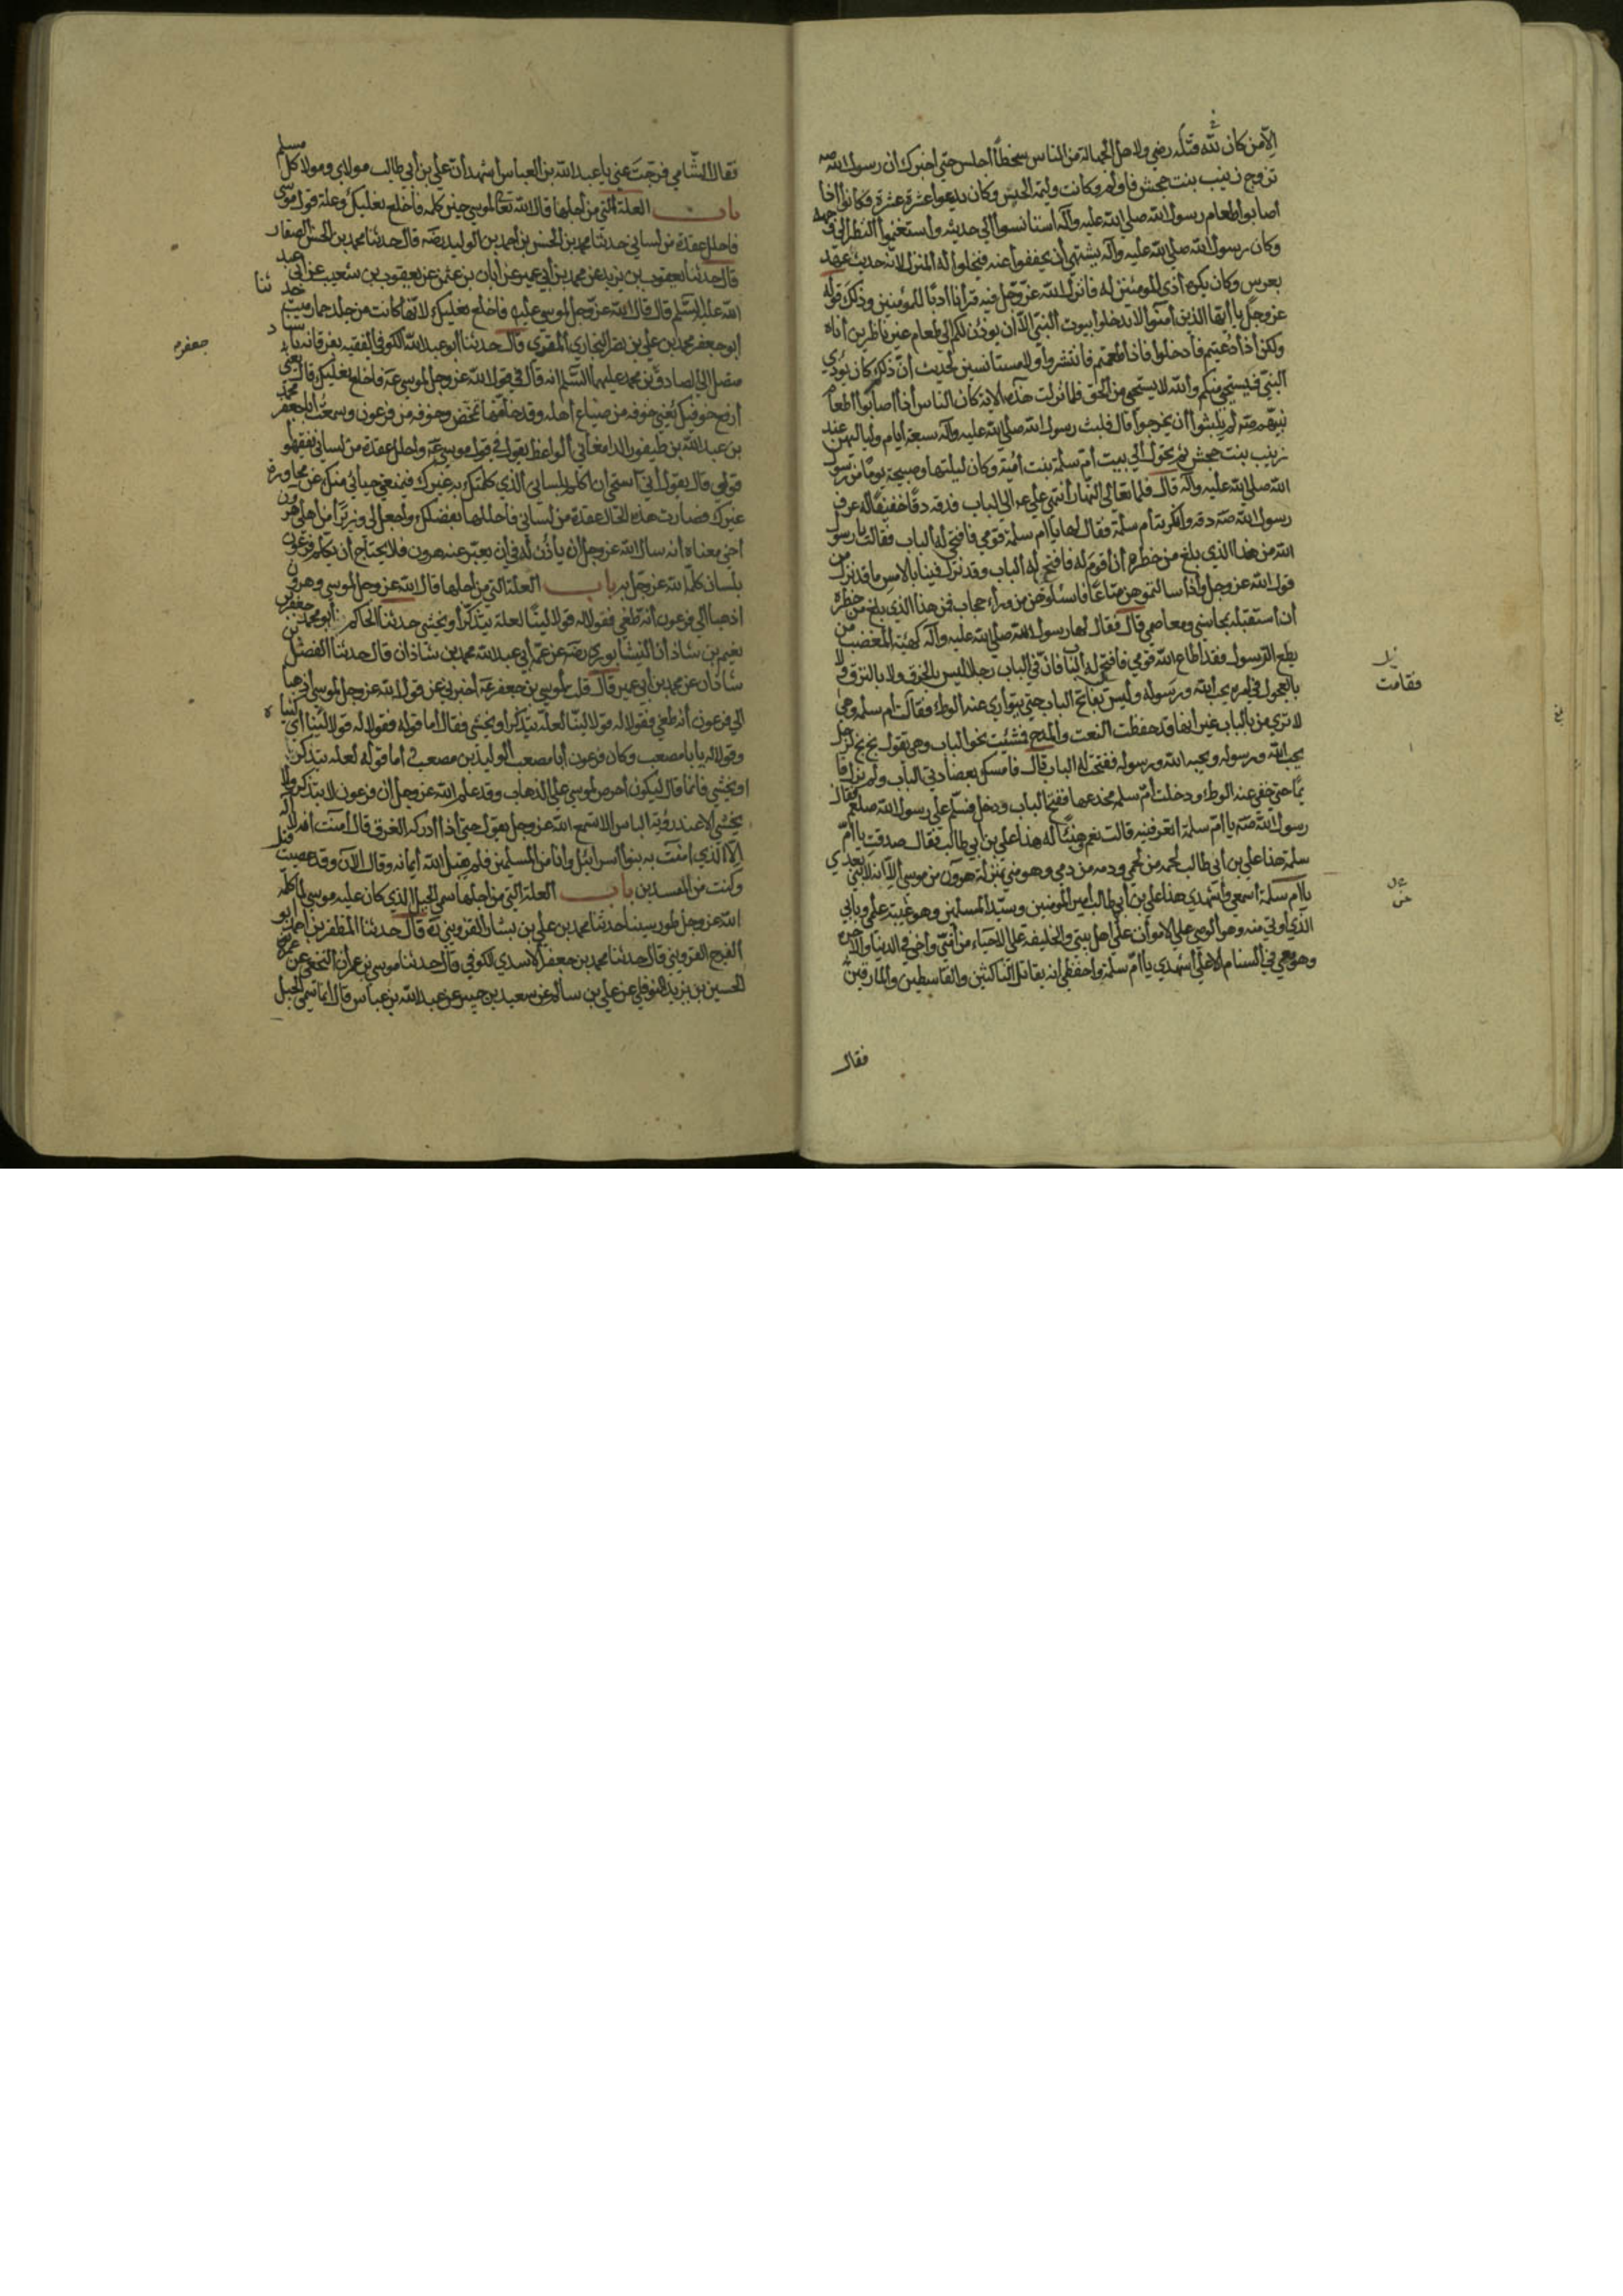 الا من كان لله قتله رضى ولاهل الجهالة من الناس سخطا اجلس حتى اخبرك ان رسول الله صه
تزوج زينب بنت جحش فاولم وكانت وليمته الحيس وكان يدعوا عشرة عشرة فكانوا اذا
اصابوا طعام رسول الله صلى الله عليه وآله استانسوا الى حديثه واستغنموا النظر الى وجهه
وكان رسول الله صلى الله عليه وآله يشتهي ان يخففوا عنه فيخلوا له المنزل لانه حديث عهد
بعرس وكان يكره اذى المؤمنين له فانزل الله عز وجل فيه قرآنا ادبا للمؤمنين وذلك قوله
عز وجل يا ايها الذين آمنوا لا تدخلوا بيوت النبي الا ان يوذن لكم الى طعام غير ناظرين اناه
ولكن اذا دعيتم فادخلوا فاذا طعمتم فانتشروا ولا مستانسين لحديث ان ذلكم كان يوذي
النبي فيستحيي منكم والله لا يستحيي من الحق فلما نزلت هذه الاية كان الناس اذا اصابوا طعام
نبيهم صه لم يلبثوا ان يخرجوا قال فلبث رسول الله صلى الله عليه وآله سبعة ايام ولياليهن عند
زينب بنت جحش ثم تحول الى بيت ام سلمة بنت امية وكان ليلتها وصبيحة يومها من رسول
الله صلى الله عليه وآله قال فلما تعالى النهار انتهى علي عه الى الباب فدقه دقا خفيفا له عرف
رسول الله صه دقه وانكرته ام سلمة فقال لها يا ام سلمة قومي فافتحي له الباب فقالت يا رسول
الله من هذا الذي بلغ من خطره ان اقوم له فافتح له الباب وقد نزل فينا بالامس ما قد نزل من
قول الله عز وجل واذا سالتموهن متاعا فاسئلوهن من وراء حجاب فمن هذا الذي بلغ من خطره
ان استقبله بمحاسني ومعاصمي قال فقال لها رسول الله صلى الله عليه وآله كهيئة المغضب من
يطع الرسول فقد اطاع الله قومي فافتحي له الباب فان في الباب رجلا ليس بالخرق ولا بالنزق ولا
بالعجول في امره يحب الله ورسوله وليس بفاتح الباب حتى يتوارى عنه الوطء فقالت ام سلمه وهي
لا تدري من بالباب غير انها قد حفظت النعت والمدح فمشيت نحو الباب وهي تقول بخ بخ لرجل
يحب الله ورسوله ويحبه الله ورسوله ففتحت له الباب قال فامسك بعضادتي الباب ولم يزل قا
يما حتى خفي عنه الوطء ودخلت ام سلمه مخدعها ففتح الباب ودخل فسلم على رسول الله صلعم فقال
رسول الله صه يا ام سلمة اتعرفينه قالت نعم وهنيئا له هذا علي بن ابي طالب فقال صدقت يا ام
سلمة هذا علي بن ابي طالب لحمه من لحمي ودمه من دمي وهو مني بمنزلة هرون من موسى الا انه لا نبي بعدي
يا ام سلمة اسمعي واشهدي هذا علي بن ابي طالب امير المومنين وسيد المسلمين وهو عيبة علمي وبابي
الذي اوتي منه وهو الوصي على الاموات من اهل بيتي والخليفة على الاحياء من امتي واخي في الدنيا والاخرة
وهو معي في السنام الاعلى اشهدي يا ام سلمة واحفظي انه يقاتل الناكثين والقاسطين والمارقين
فقال
فقامت
فقال الشامي فرجت عني يا عبد الله بن العباس اشهد ان علي بن ابي طالب مولاي ومولا كل مسلم
باب العلة التي من اجلها قال الله تعالى لموسى حين كلمه فاخلع نعليك وعلة قول موسى
فاحلل عقدة من لساني حدثنا محمد بن الحسن بن احمد بن الوليد رضه قال حدثنا محمد بن الحسن الصفار
قال حدثنا يعقوب بن يزيد عن محمد بن ابي عمير عن ابان بن عثمن عن يعقوب بن شعيب عن ابي عبد
الله عليه السلم قال قال الله عز وجل لموسى عليه فاخلع نعليك لانها كانت من جلد حمار ميت حدثنا
ابو جعفر محمد بن علي بن نصر البخاري المقري قال حدثنا ابو عبد الله الكوفي الفقيه بفرغانه باسناد
متصل الى الصادق بن محمد عليهما السلم انه قال في قول الله عز وجل لموسى عه فاخلع نعليك قال يعني
ارفع خوفيك يعني خوفه من ضياع اهله وقد خلفها تمخض وخوفه من فرعون وسمعت ابا جعفر محمد
بن عبد الله بن طيفور الدامغاني الواعظ يقول في قول موسى عه واحلل عقدة من لساني يفقهوا
قولي قال يقول اني استحي ان اكلم بلساني الذي كلمتك به غيرك فيمنعني حيائي منك عن محاورة
غيرك فصارت هذه الحال عقدة من لساني فاحللها بفضلك واجعل لي وزيرا من اهلي هرون
اخي معناه انه سال الله عز وجل ان ياذن له في ان يعبر عنه هرون فلا يحتاج ان يكلم فرعون
بلسان كلم الله عز وجل به باب العلة التي من اجلها قال الله عز وجل لموسى وهرون
اذهبا الى فرعون انه طغى فقولا له قولا لينا لعله يتذكر او يخشى حدثنا الحاكم ابو محمد جعفر بن
نعيم بن شاذان النيشابوري رضه عن عمه ابي عبد الله محمد بن شاذان قال حدثنا الفضل بن
شاذان عن محمد بن ابي عمير قال قلت لموسى بن جعفر عه اخبرني عن قول الله عز وجل لموسى اذهبا
الى فرعون انه طغى فقولا له قولا لينا لعله يتذكر او يخشى فقال اما قوله فقولا له قولا لينا اي كنياه
وقولا له يا با مصعب وكان فرعون ابا مصعب الوليد بن مصعب واما قوله لعله يتذكر
او يخشى فانما قال ليكون احرص لموسى على الذهاب وقد علم الله عز وجل ان فرعون لا يتذكر ولا
يخشى الا عند رؤية الباس الا تسمع الله عز وجل يقول حتى اذا ادركه الغرق قال امنت انه لا اله
الا الذي امنت به بنوا اسرائيل وانا من المسلمين فلم يقبل الله ايمانه وقال الآن وقد عصيت قبل
وكنت من المفسدين باب العلة التي من اجلها سمي الجبل الذي كان عليه موسى لما كلمه
الله عز وجل طور سينا حدثنا محمد بن علي بن بشار القزويني ره قال حدثنا المظفر بن احمد ابو
الفرج القزويني قال حدثنا محمد بن جعفر الاسدي الكوفي قال حدثنا موسى بن عمران النخعي عن عمه
الحسين بن يزيد النوفلي عن علي بن سالم عن سعيد بن جبير عن عبد الله بن عباس قال انما سمي الجبل
جعفر